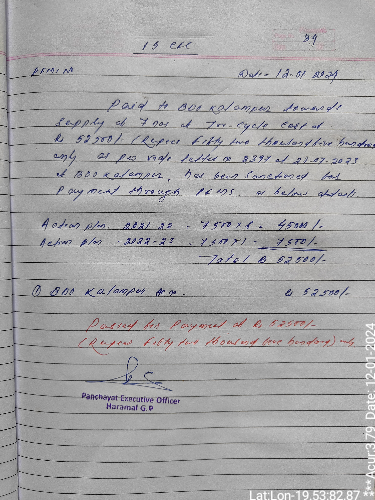 15 CFC
29
Date- 12-01-2024
Paid to BDO Kalampur towards
Supply of 7 nos of Tri-Cycle Cost of
Rs 52500/- (Rupees Fifty two thousand five hundred
only as per vide letter no 2397 of
of BDO Kalampur, has been Sanctioned for
Payment through PFMS, as below details
Action plan 2021-22 - 7500 X 6 = 45000/-
Action plan 2022-23 - 7500 X 1 = 7,500/-
Total Rs 52500/-
① BDO Kalampur Rs 52500/-
Passed for Payment of Rs 52500/-
(Rupees Fifty two thousand five hundred) only
Panchayat Executive Officer
Haramal G.P
Lat:Lon-19.53:82.87
** Acur:3.79 Date:12-01-2024 **